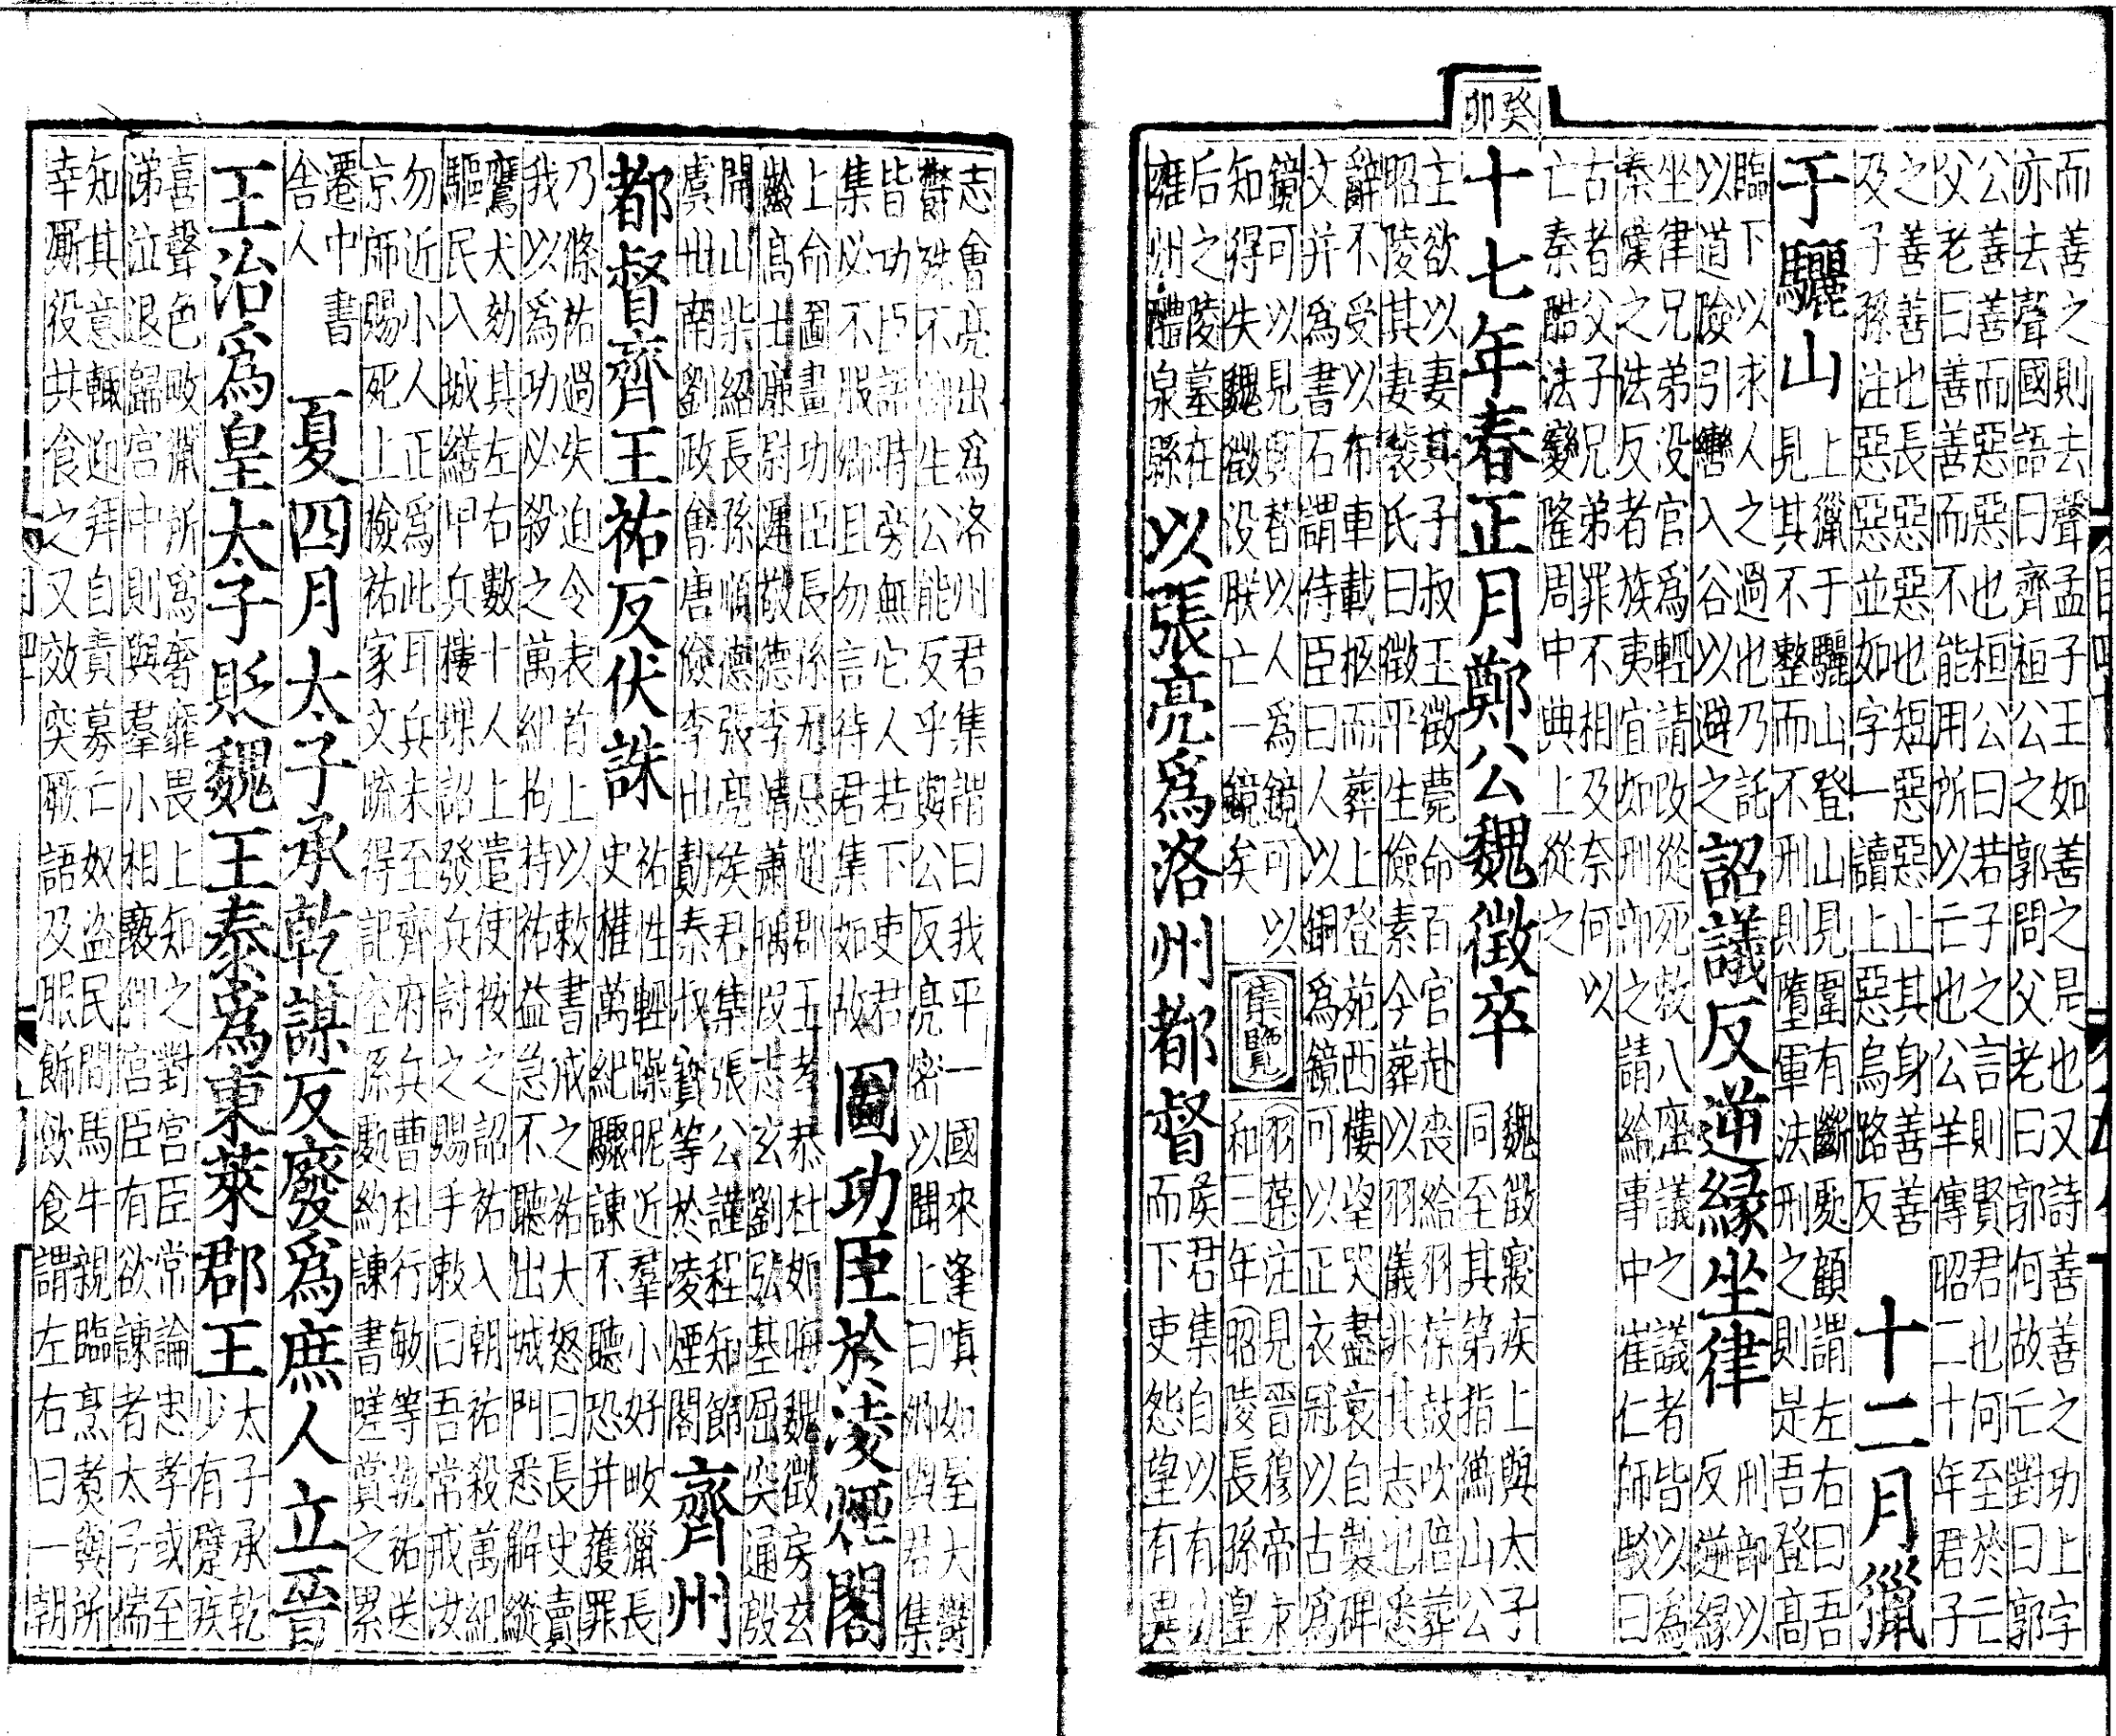 而善之則去聲孟子王如善之是也又詩善善之功上字
亦去聲國語曰齊桓公之郭問父老曰郭何故亡對曰郭
公善善而惡惡也桓公曰若子之言則賢君也何至於亡
父老曰善善而不能用所以亡也公羊傳昭二十年君子
之善善也長惡惡也短惡惡止其身善善
及子孫注惡惡並如字一讀上惡烏路反
十二月獵
于驪山
上獵于驪山登山見圍有斷處顧謂左右曰吾
見其不整而不刑則墮軍法刑之則是吾登高
臨下以求人之過也乃託
以道險引轡入谷以避之
詔議反逆緣坐律
刑部以
反逆緣
坐律兄弟没官爲輕請改從死敕八座議之議者皆以爲
秦漢之法反者族夷宜如刑部之請給事中崔仁師駁曰
古者父子兄弟罪不相及奈何以
亡秦酷法變隆周中典上從之
癸卯
十七年春正月鄭公魏徵卒
魏徵寢疾上與太子
同至其第指衡山公
主欲以妻其子叔玉徵薨命百官赴喪給羽葆鼓吹陪葬
昭陵其妻裴氏曰徵平生儉素今葬以羽儀非其志也悉
辭不受以布車載柩而葬上登苑西樓望哭盡哀自製碑
文并爲書石謂侍臣曰人以銅爲鏡可以正衣冠以古爲
鏡可以見興替以人爲鏡可以
知得失魏徵没朕亡一鏡矣
集覽
羽葆注見晉穆帝永
和三年昭陵長孫皇
后之陵墓在
雍州醴泉縣
以張亮爲洛州都督
侯君集自以有功
而下吏怨望有異
志會亮出爲洛州君集謂曰我平一國來逢嗔如至大鬱
鬱殊不聊生公能反乎與公反亮密以聞上曰卿與君集
皆功臣語時旁無它人若下吏君
集必不服卿且勿言待君集如故
圖功臣於淩煙閣
上命圖畫功臣長孫无忌趙郡王孝恭杜如晦魏徵房玄
齡高士廉尉遲敬德李靖蕭瑀段志玄劉弘基屈突通殷
開山柴紹長孫順德張亮侯君集張公謹程知節
虞世南劉政會唐儉李世勣秦叔寶等於凌煙閣
齊州
都督齊王祐反伏誅
祐性輕躁昵近羣小好畋獵長
史權萬紀驟諫不聽恐并獲罪
乃條祐過失迫令表首上以敕書戒之祐大怒曰長史賣
我以爲功必殺之萬紀拘持祐益急不聽出城門悉解縱
鷹犬劾其左右數十人上遣使按之詔祐入朝祐殺萬紀
驅民入城繕甲兵樓堞詔發兵討之賜手敕曰吾常戒汝
勿近小人正爲此耳兵未至齊府兵曹杜行敏等執祐送
京師賜死上檢祐家文疏得記室孫處約諫書嗟賞之累
遷中書
舍人
夏四月太子承乾謀反廢爲庶人立晉
王治爲皇太子貶魏王泰爲東萊郡王
太子承乾
少有躄疾
喜聲色畋獵所爲奢靡畏上知之對宮臣常論忠孝或至
涕泣退歸宮中則與羣小相褻狎宮臣有欲諫者太子揣
知其意輒迎拜自責募亡奴盜民間馬牛親臨烹煑與所
幸厮役共食之又效突厥語及服飾飲食謂左右曰一朝